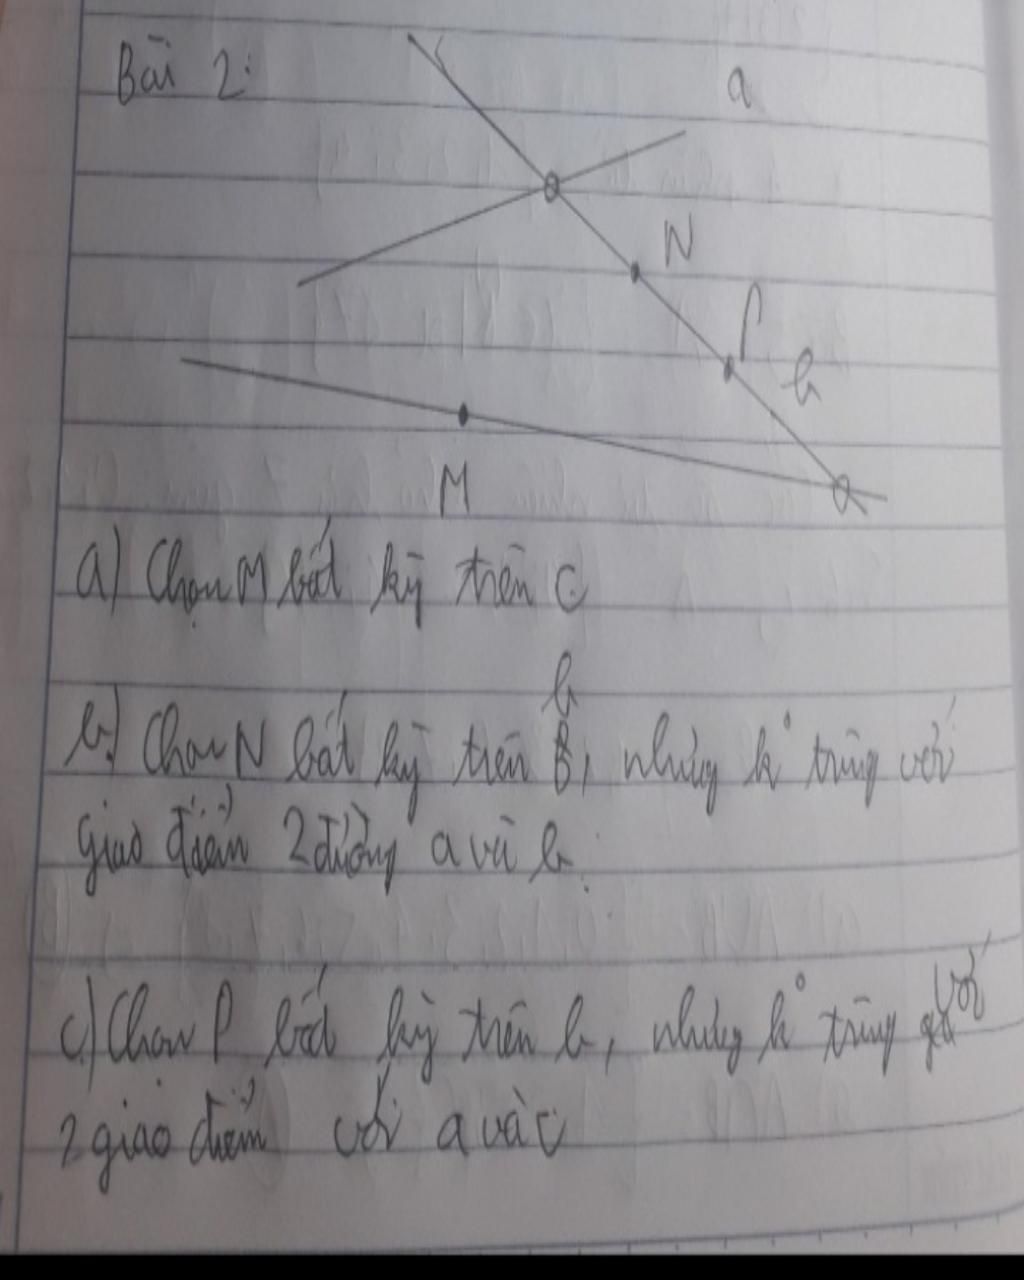 Bài 2:
a
N
P
b
M
a) Chọn M bất kỳ trên c
b
b) Chọn N bất kỳ trên , nhưng k° trùng với
giao điểm 2 đường a và b.
với
c) Chọn P bất kỳ trên b, nhưng k° trùng
2 giao điểm với a và c